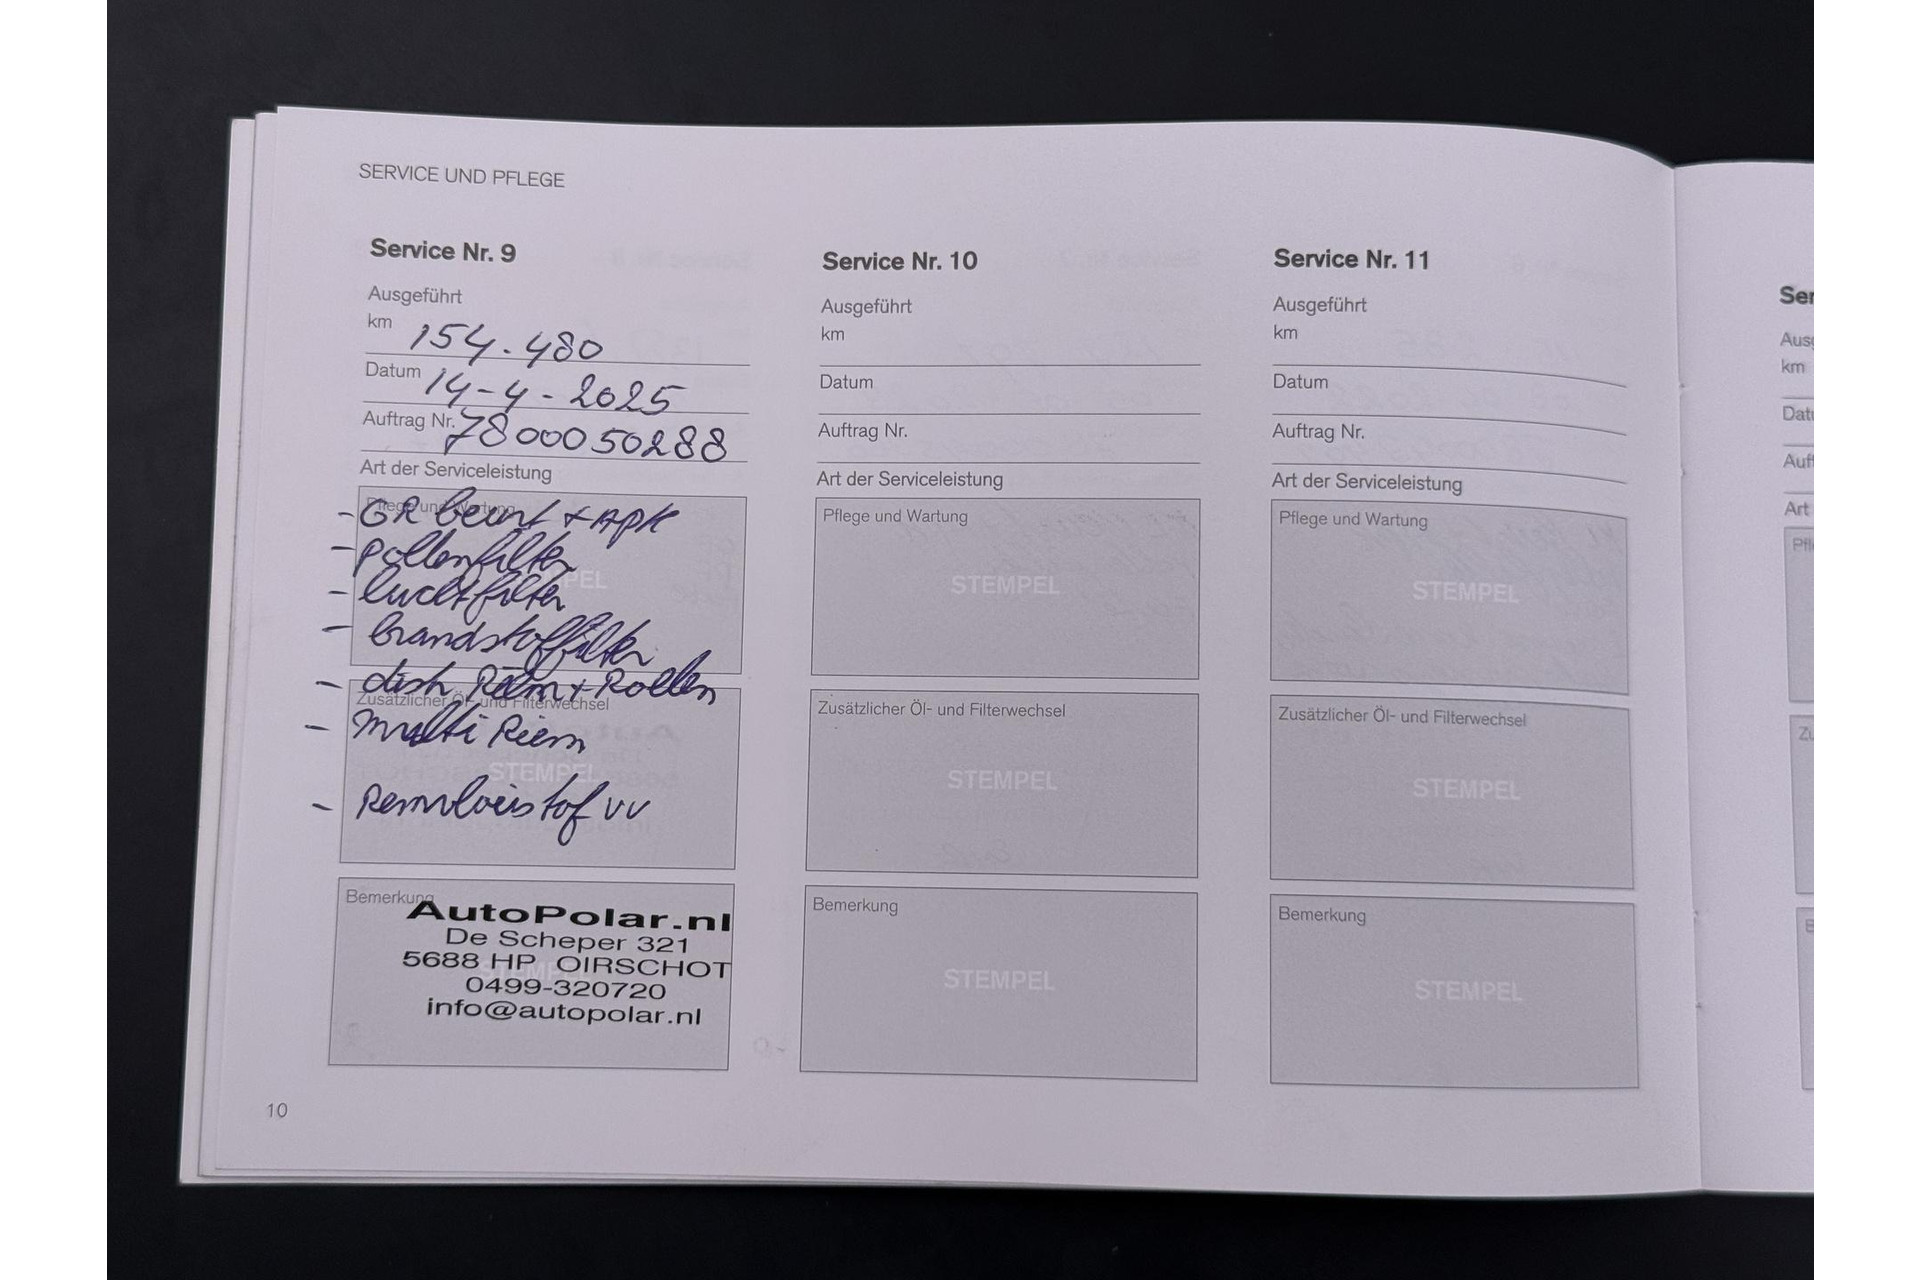 SERVICE UND PFLEGE
Service Nr. 9
Ausgeführt
km 154.480
Datum 14-4-2025
Auftrag Nr. 7800050288
Art der Serviceleistung
Pflege und Wartung
- GR beurt + APK
- pollenfilter
STEMPEL
- luchtfilter
- brandstoffilter
- distr Riem + Rollen
Zusätzlicher Öl- und Filterwechsel
- multi Riem
STEMPEL
- Remvloeistof vv
Bemerkung
AutoPolar.nl
De Scheper 321
5688 HP OIRSCHOT
STEMPEL
0499-320720
info@autopolar.nl
10
Service Nr. 10
Ausgeführt
km
Datum
Auftrag Nr.
Art der Serviceleistung
Pflege und Wartung
STEMPEL
Zusätzlicher Öl- und Filterwechsel
STEMPEL
Bemerkung
STEMPEL
Service Nr. 11
Ausgeführt
km
Datum
Auftrag Nr.
Art der Serviceleistung
Pflege und Wartung
STEMPEL
Zusätzlicher Öl- und Filterwechsel
STEMPEL
Bemerkung
STEMPEL
Ser
Ausg
km
Datu
Auft
Art
Pfle
Zu
B